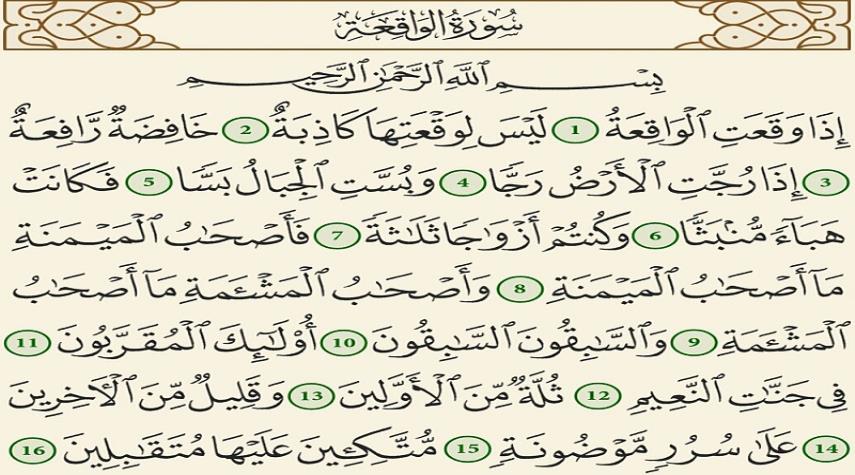 سُورَةُ الوَاقِعَةِ
بِسْمِ ٱللَّهِ ٱلرَّحْمَٰنِ ٱلرَّحِيمِ
إِذَا وَقَعَتِ ٱلْوَاقِعَةُ 1 لَيْسَ لِوَقْعَتِهَا كَاذِبَةٌ 2 خَافِضَةٌ رَّافِعَةٌ
3 إِذَا رُجَّتِ ٱلْأَرْضُ رَجًّا 4 وَبُسَّتِ ٱلْجِبَالُ بَسًّا 5 فَكَانَتْ
هَبَآءً مُّنۢبَثًّا 6 وَكُنتُمْ أَزْوَٰجًا ثَلَٰثَةً 7 فَأَصْحَٰبُ ٱلْمَيْمَنَةِ
مَآ أَصْحَٰبُ ٱلْمَيْمَنَةِ 8 وَأَصْحَٰبُ ٱلْمَشْـَٔمَةِ مَآ أَصْحَٰبُ
ٱلْمَشْـَٔمَةِ 9 وَٱلسَّٰبِقُونَ ٱلسَّٰبِقُونَ 10 أُو۟لَٰٓئِكَ ٱلْمُقَرَّبُونَ 11
فِى جَنَّٰتِ ٱلنَّعِيمِ 12 ثُلَّةٌ مِّنَ ٱلْأَوَّلِينَ 13 وَقَلِيلٌ مِّنَ ٱلْـَٔاخِرِينَ
14 عَلَىٰ سُرُرٍ مَّوْضُونَةٍ 15 مُّتَّكِـِٔينَ عَلَيْهَا مُتَقَٰبِلِينَ 16